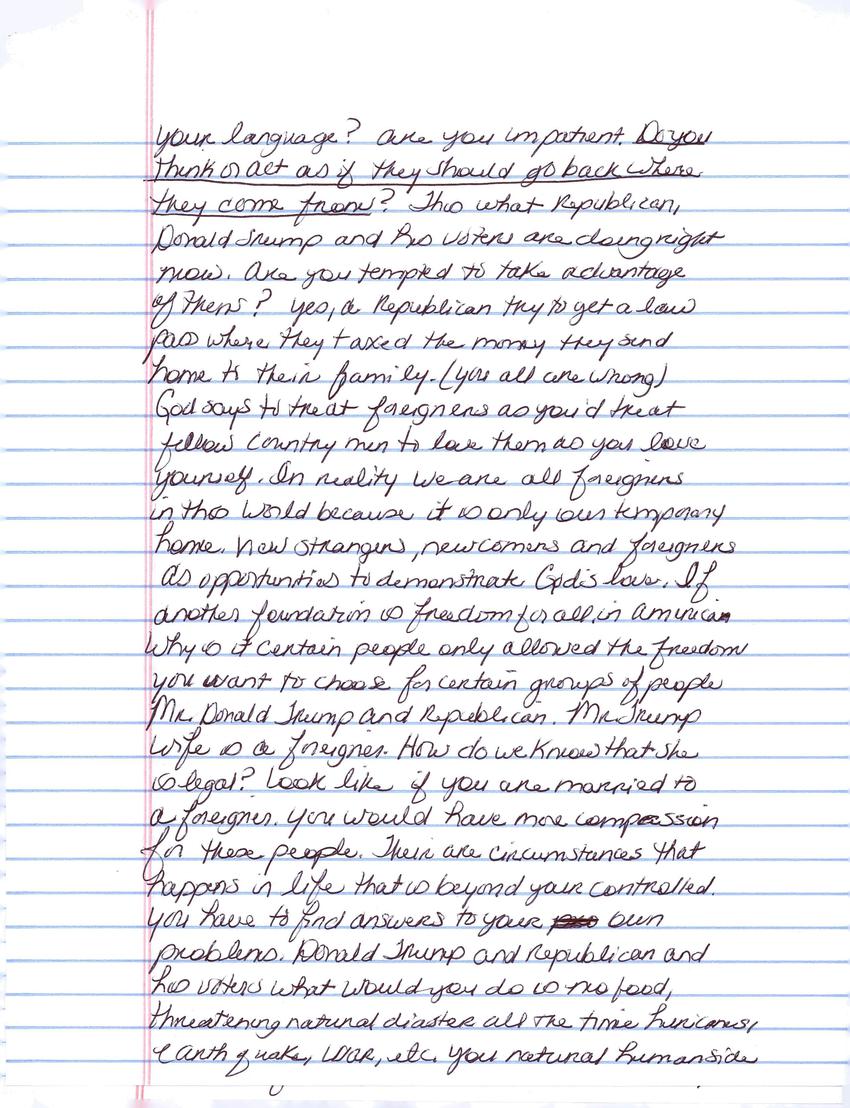 your language? are you impatient. Do you
think or act as if they should go back where
they come from? This what Republican,
Donald Trump and his voters are doing right
now. Are you tempted to take advantage
of them? yes, a Republican try to get a law
pass where they taxed the money they send
home to their family. (you all are wrong)
God says to treat foreigners as you'd treat
fellow country men to love them as you love
yourself. In reality we are all foreigners
in this world because it is only our temporary
home. View strangers, newcomers and foreigners
as opportunities to demonstrate God's love. If
another foundation is freedom for all, in American
Why is it certain people only allowed the freedom
you want to choose for certain groups of people
Mr. Donald Trump and Republican. Mr. Trump
wife is a foreigner. How do we know that she
is legal? Look like if you are married to
a foreigner. you would have more compassion
for these people. Their are circumstances that
happens in life that is beyond your controlled.
you have to find answers to your own
problems. Donald Trump and Republican and
his voters what would you do is no food,
threatening natural diaster all the time huricanes,
earth quake, war, etc. you natural human side